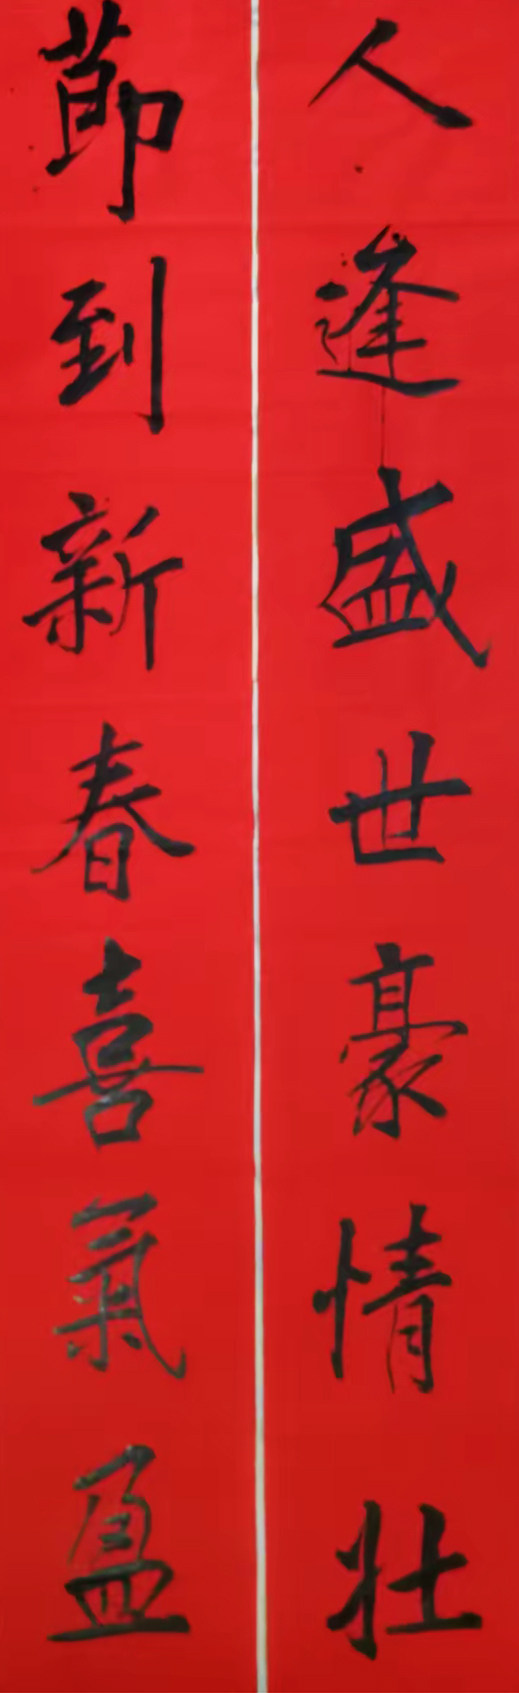 人逢盛世豪情壯
節到新春喜氣盈